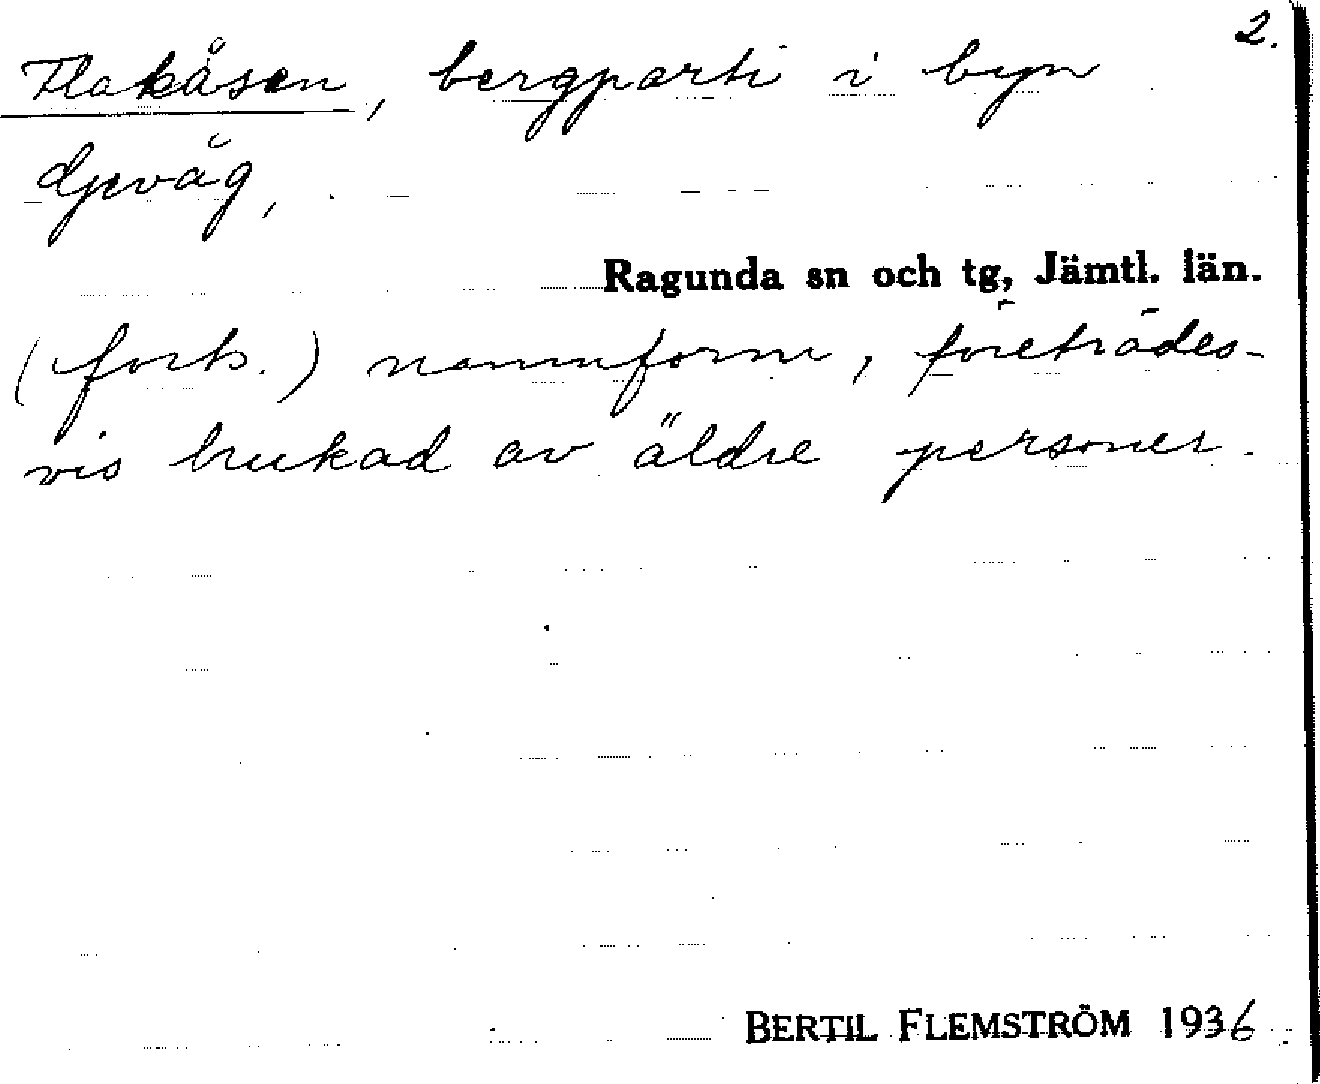 2.
Flakåsen, bergparti i byn
Djeväg,
Ragunda sn och tg, Jämtl. län.
(forts.) namnform, företrädes-
vis brukad av äldre personer.
BERTIL FLEMSTRÖM 1936